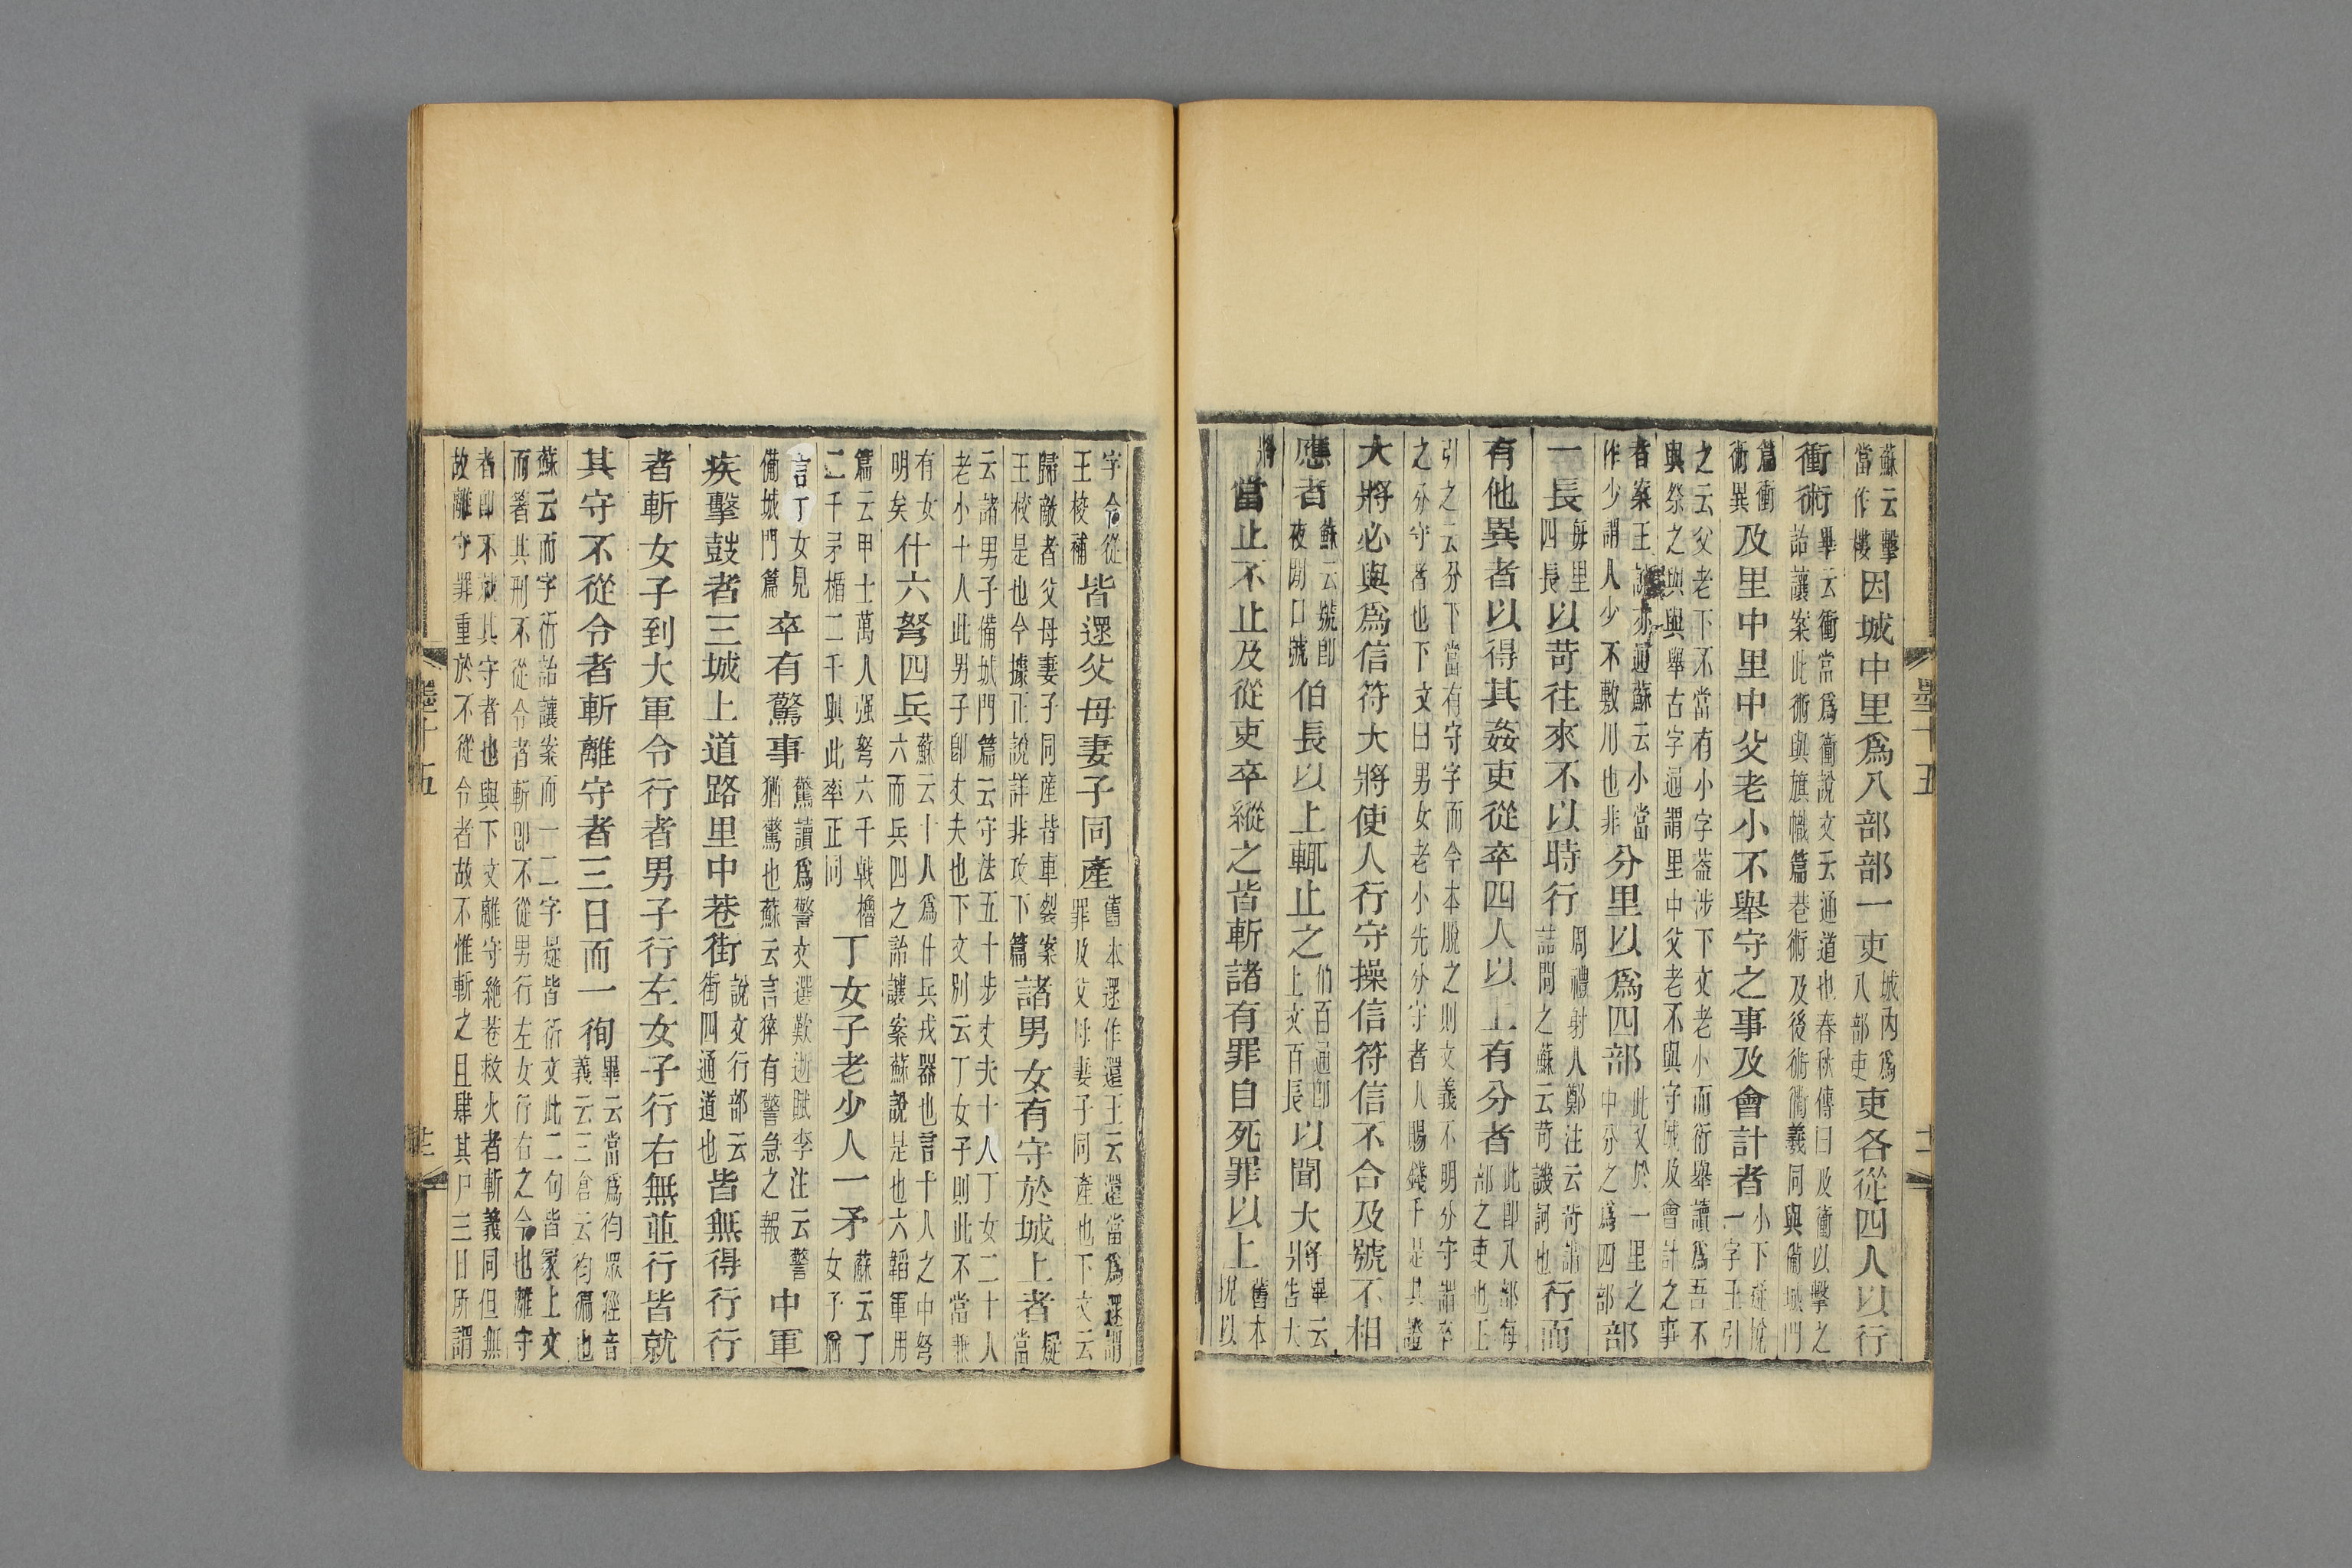 蘇云擊當作樓因城中里爲八部部一吏城內爲八部吏吏各從四人以行
衝術畢云衝當爲衝說文云通道也春秋傳曰及衝以擊之詒讓案此術與旗幟篇巷術及後術衢義同與備城門
篇衝術異及里中里中父老小不舉守之事及會計者小下疑脫一字王引
之云父老下不當有小字葢涉下文老小而衍舉讀爲吾不與祭之與與舉古字通謂里中父老不與守城及會計之事
者案王說亦通蘇云小當作少謂人少不敷用也非分里以爲四部此又於一里之中分之爲四部部
一長每里四長以苛往來不以時行周禮射人鄭注云苛謂詰問之蘇云苛譏訶也行而
有他異者以得其姦吏從卒四人以上有分者此卽八部每部之吏也王
引之云分下當有守字而今本脫之則文義不明分守謂卒之分守者也下文曰男女老小先分守者人賜錢千是其證
大將必與爲信符大將使人行守操信符信不合及號不相
應者蘇云號卽夜閒口號伯長以上輒止之伯百通卽上文百長以聞大將畢云告大
將當止不止及從吏卒縱之皆斬諸有罪自死罪以上舊本挩以
墨十五
字今從王校補皆還父母妻子同產舊本還作還王云還當爲還謂罪及父母妻子同產也下文云
歸敵者父母妻子同產皆車裂案王校是也今據正說詳非攻下篇諸男女有守於城上者疑當
云諸男子備城門篇云守法五十步丈夫十人丁女二十人老小十人此男子卽丈夫也下文別云丁女子則此不當兼
有女明矣什六弩四兵蘇云十人爲什兵戎器也言十人之中弩六而兵四之詒讓案蘇說是也六韜軍用
篇云甲士萬人强弩六千戟櫓二千矛楯二千與此率正同丁女子老少人一矛蘇云丁女子猶
言丁女見備城門篇卒有驚事驚讀爲警文選歎逝賦李注云警猶驚也蘇云言猝有警急之報中軍
疾擊鼓者三城上道路里中巷街說文行部云街四通道也皆無得行行
者斬女子到大軍令行者男子行左女子行右無並行皆就
其守不從令者斬離守者三日而一徇畢云當爲徇眾經音義云三倉云徇徧也
蘇云而字衍詒讓案而一二字疑皆衍文此二句皆冢上文而著其刑不從令者斬卽不從男行左女行右之令也離守
者卽不就其守者也與下文離守絕巷救火者斬義同但無故離守罪重於不從令者故不惟斬之且肆其尸三日所謂
墨十五